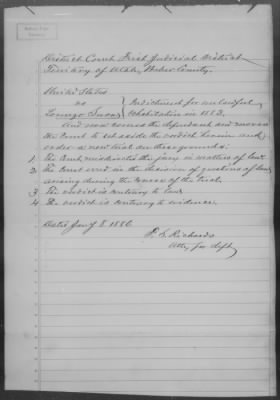 District Court First Judicial District
Territory of Utah, Weber County.
United States
vs
Lorenzo Snow
Indictment for unlawful
Cohabitation in 1883.
And now comes the defendant and moves
the Court to set aside the verdict herein and
order a new trial on these grounds:
1 The Court misdirected the jury in matters of law.
2 The Court erred in the decision of questions of law
arising during the course of the trial.
3 The verdict is contrary to law.
4 The verdict is contrary to evidence.
Dated Jany 8. 1886
F. S. Richards
Atty. for deft.